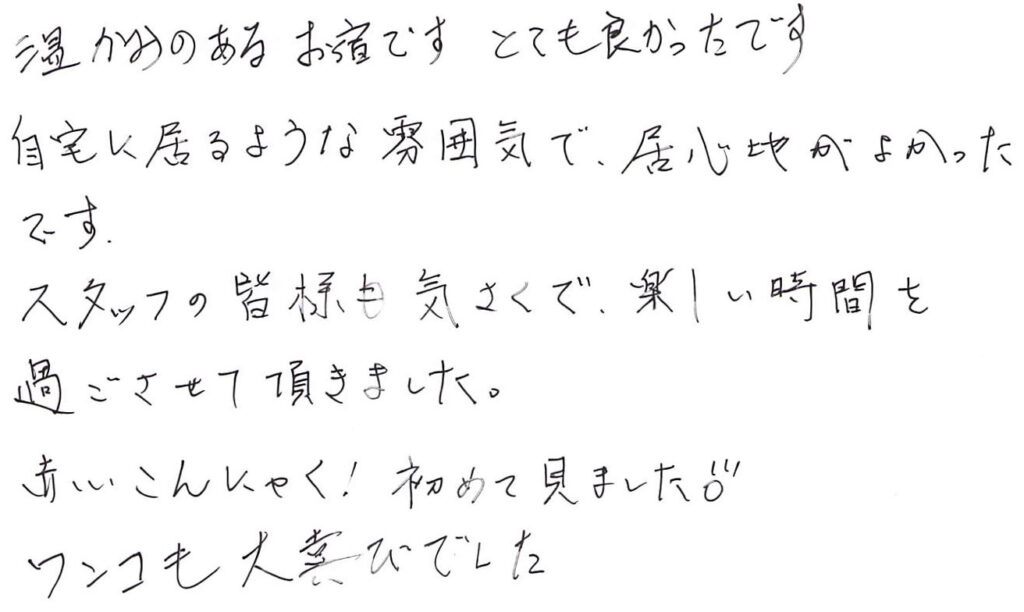 温かみのあるお宿です とても良かったです
自宅に居るような雰囲気で、居心地がよかった
です.
スタッフの皆様も気さくで、楽しい時間を
過ごさせて頂きました。
赤いこんにゃく!初めて見ました!!
ワンコも大喜びでした